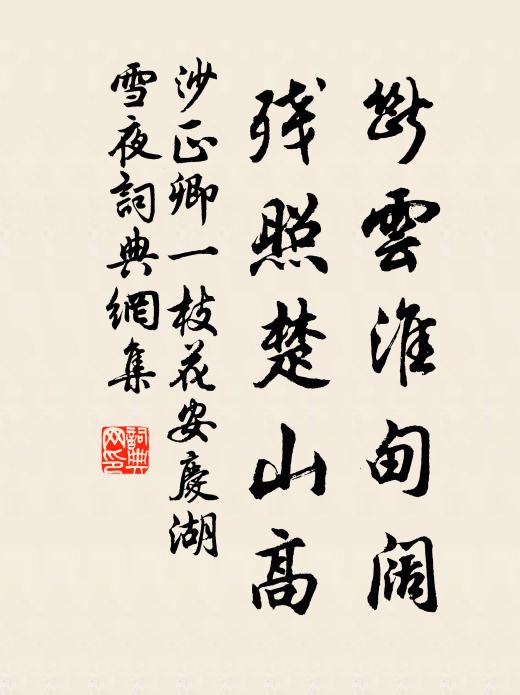 斷雲淮甸阔
残照楚山高
沙正卿一枝花安慶湖
雪夜詞典網集
詞典
网印